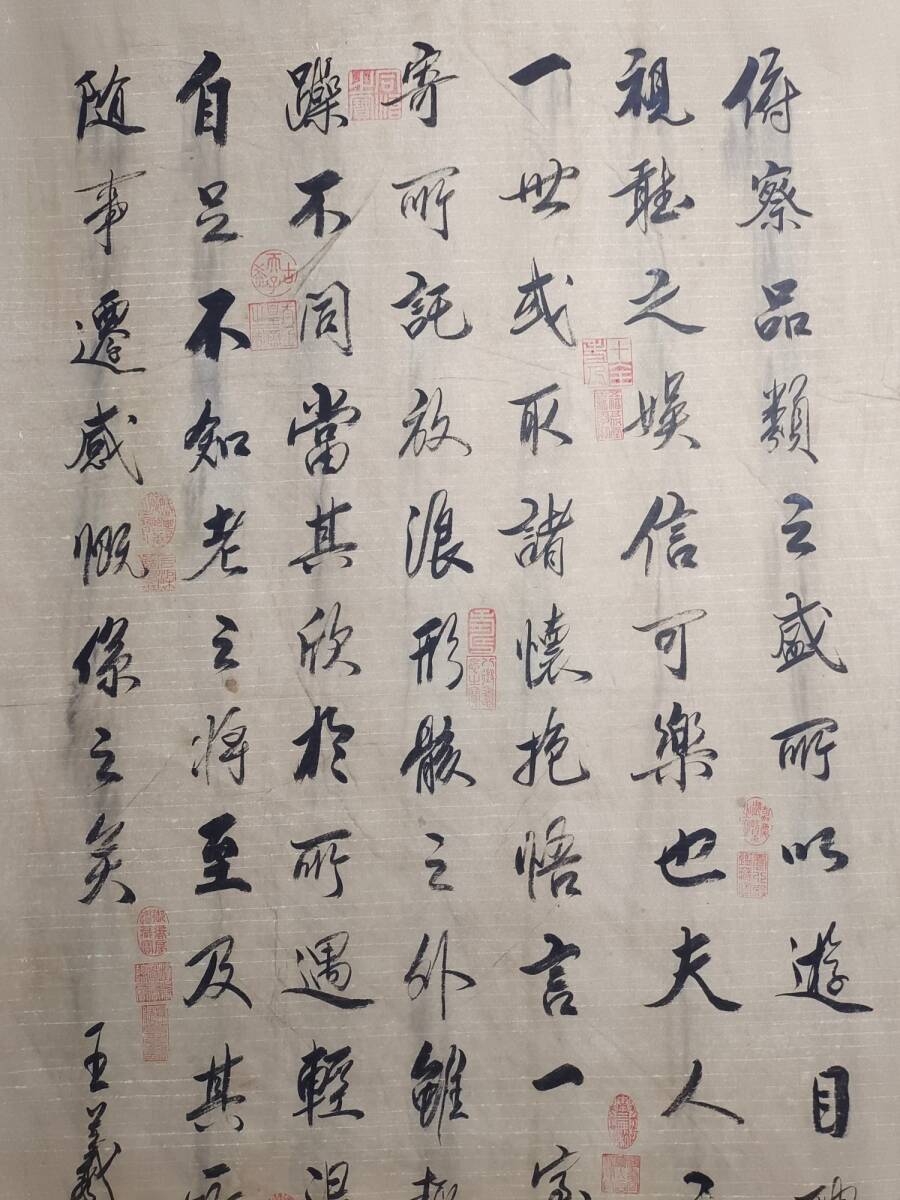 俯察品類之盛所以遊目
視聽之娱信可樂也夫人
一世或取諸懷抱悟言一室
寄所託放浪形骸之外雖
躁不同當其欣於所遇輕
自足不知老之將至及其所
随事遷感慨係之矣 王羲